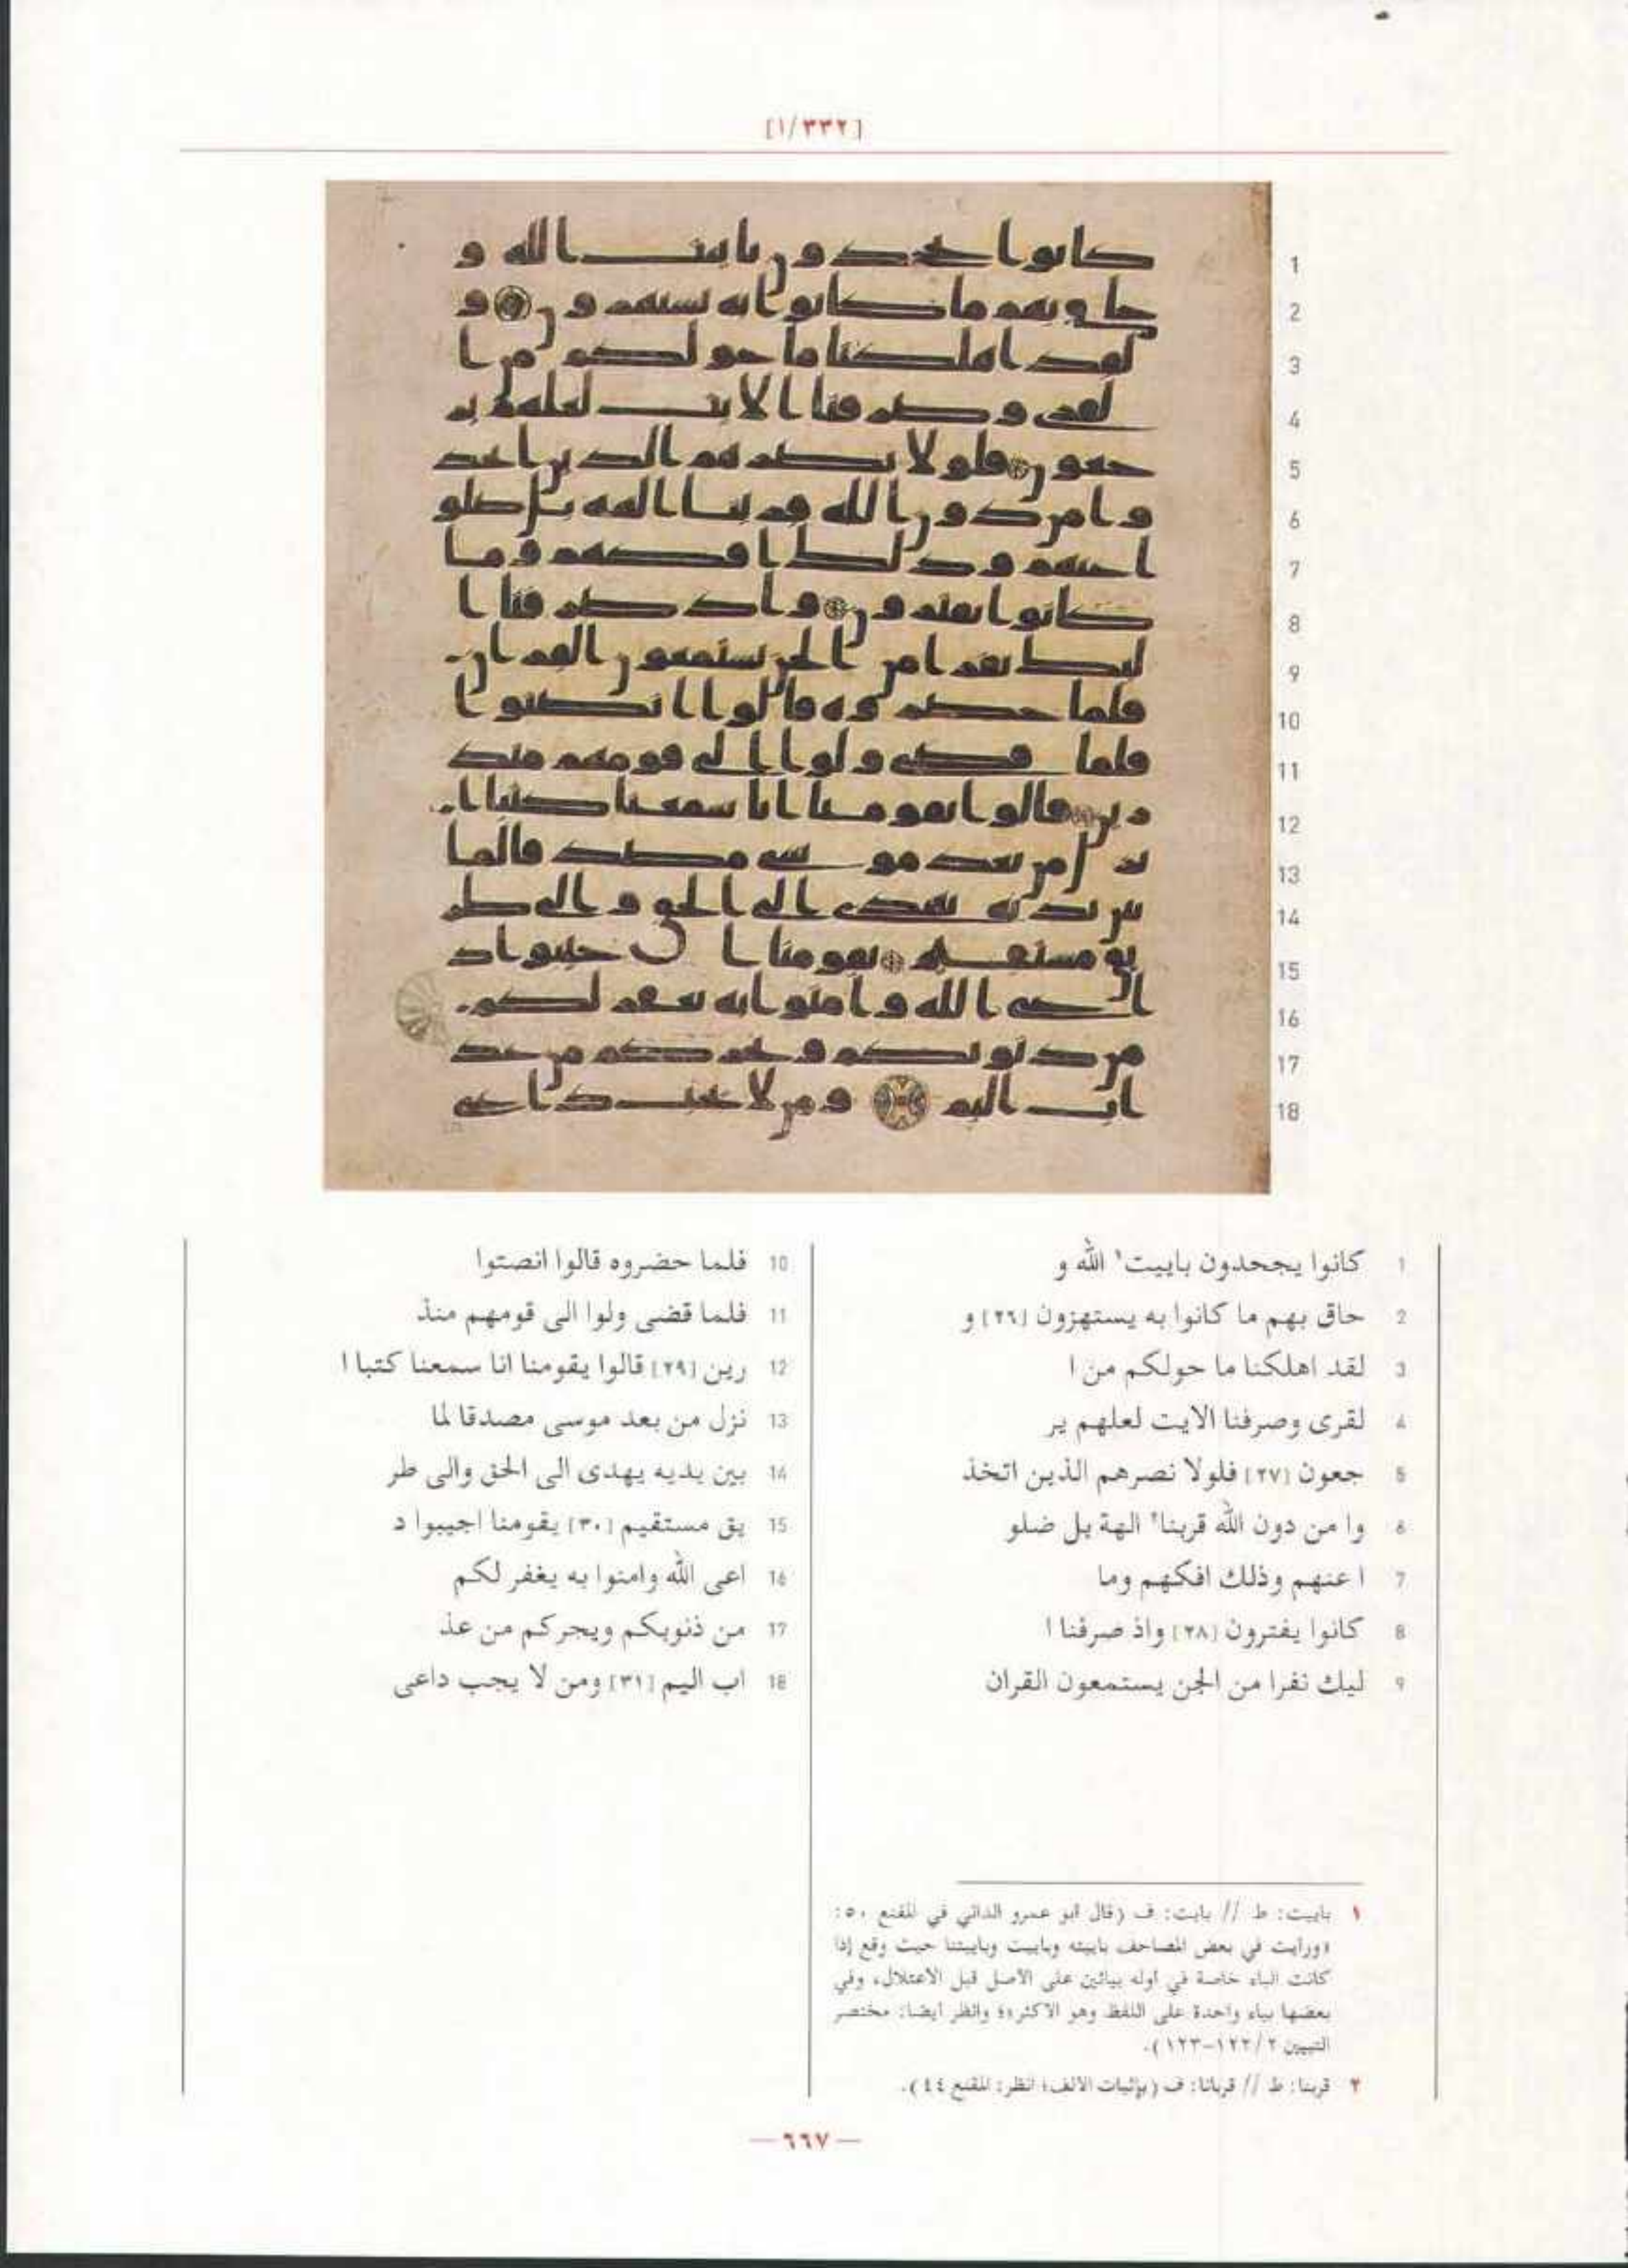 [١/٣٣٢]
1 كانوا يجحدون باييت١ الله و
2 حاق بهم ما كانوا به يستهزون [٢٦] و
3 لقد اهلكنا ما حولكم من ا
4 لقرى وصرفنا الايت لعلهم ير
5 جعون [٢٧] فلولا نصرهم الذين اتخذ
6 وا من دون الله قربنا٢ الهة بل ضلو
7 ا عنهم وذلك افكهم وما
8 كانوا يفترون [٢٨] واذ صرفنا ا
9 ليك نفرا من الجن يستمعون القران
10 فلما حضروه قالوا انصتوا
11 فلما قضى ولوا الى قومهم منذ
12 رين [٢٩] قالوا يقومنا انا سمعنا كتبا ا
13 نزل من بعد موسى مصدقا لما
14 بين يديه يهدى الى الحق والى طر
15 يق مستقيم [٣٠] يقومنا اجيبوا د
16 اعى الله وامنوا به يغفر لكم
17 من ذنوبكم ويجركم من عذ
18 اب اليم [٣١] ومن لا يجب داعى
١ باييت: ط // بايت: ف (قال ابو عمرو الداني في المقنع ٥٠:
«ورايت في بعض المصاحف باييته وباييت وباييتنا حيث وقع إذا
كانت الباء خاصة في اوله بيائين على الاصل قبل الاعتلال، وفي
بعضها بياء واحدة على اللفظ وهو الاكثر»؛ وانظر ايضا: مختصر
التبيين ٢/١٢٢-١٢٣).
٢ قربنا: ط // قربانا: ف (بإثبات الالف؛ انظر: المقنع ٤٤).
— ٦٦٧ —